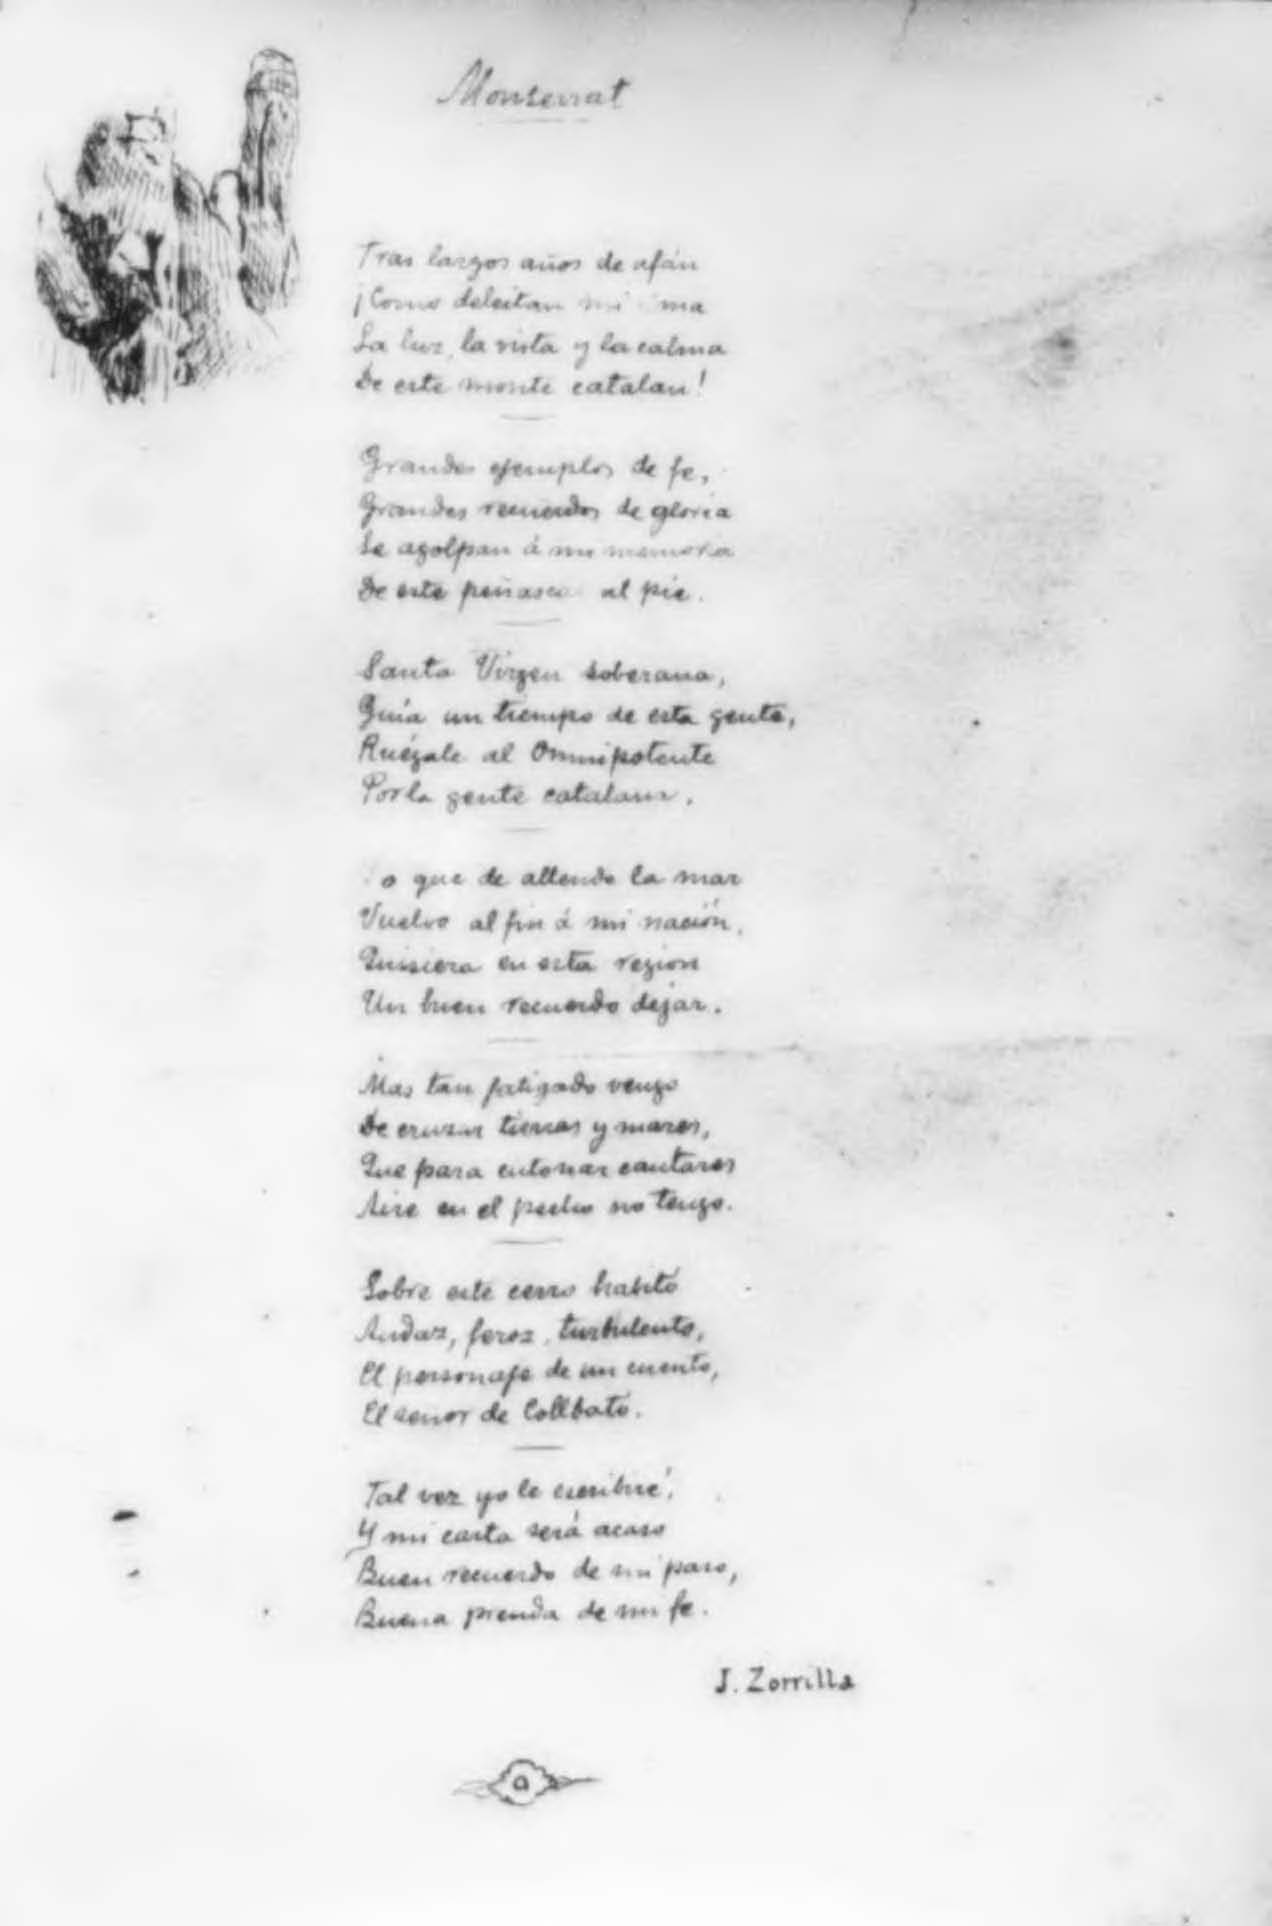 Monserrat
Tras largos años de afán
¡Como deleitan mi
La luz, la vista y la calma
De este monte catalan!
Grandes ejemplos de fe,
Grandes recuerdos de gloria
Se agolpan á mi memoria
De este peñasco al pie.
Santa Virgen soberana,
Guía un tiempo de esta gente,
Ruégale al Omnipotente
Por la gente catalana.
que de allende la mar
Vuelvo al fin á mi nación,
Quisiera en esta region
Un buen recuerdo dejar.
Mas tan fatigado vengo
De cruzar tierras y mares,
Que para entonar cantares
Aire en el pecho no tengo.
Sobre este cerro habitó
Audaz, feroz, turbulento,
El personaje de un cuento,
El señor de Collbató.
Tal vez yo le escribiré,
Y mi carta será acaso
Buen recuerdo de mi paso,
Buena prenda de mi fe.
J. Zorrilla